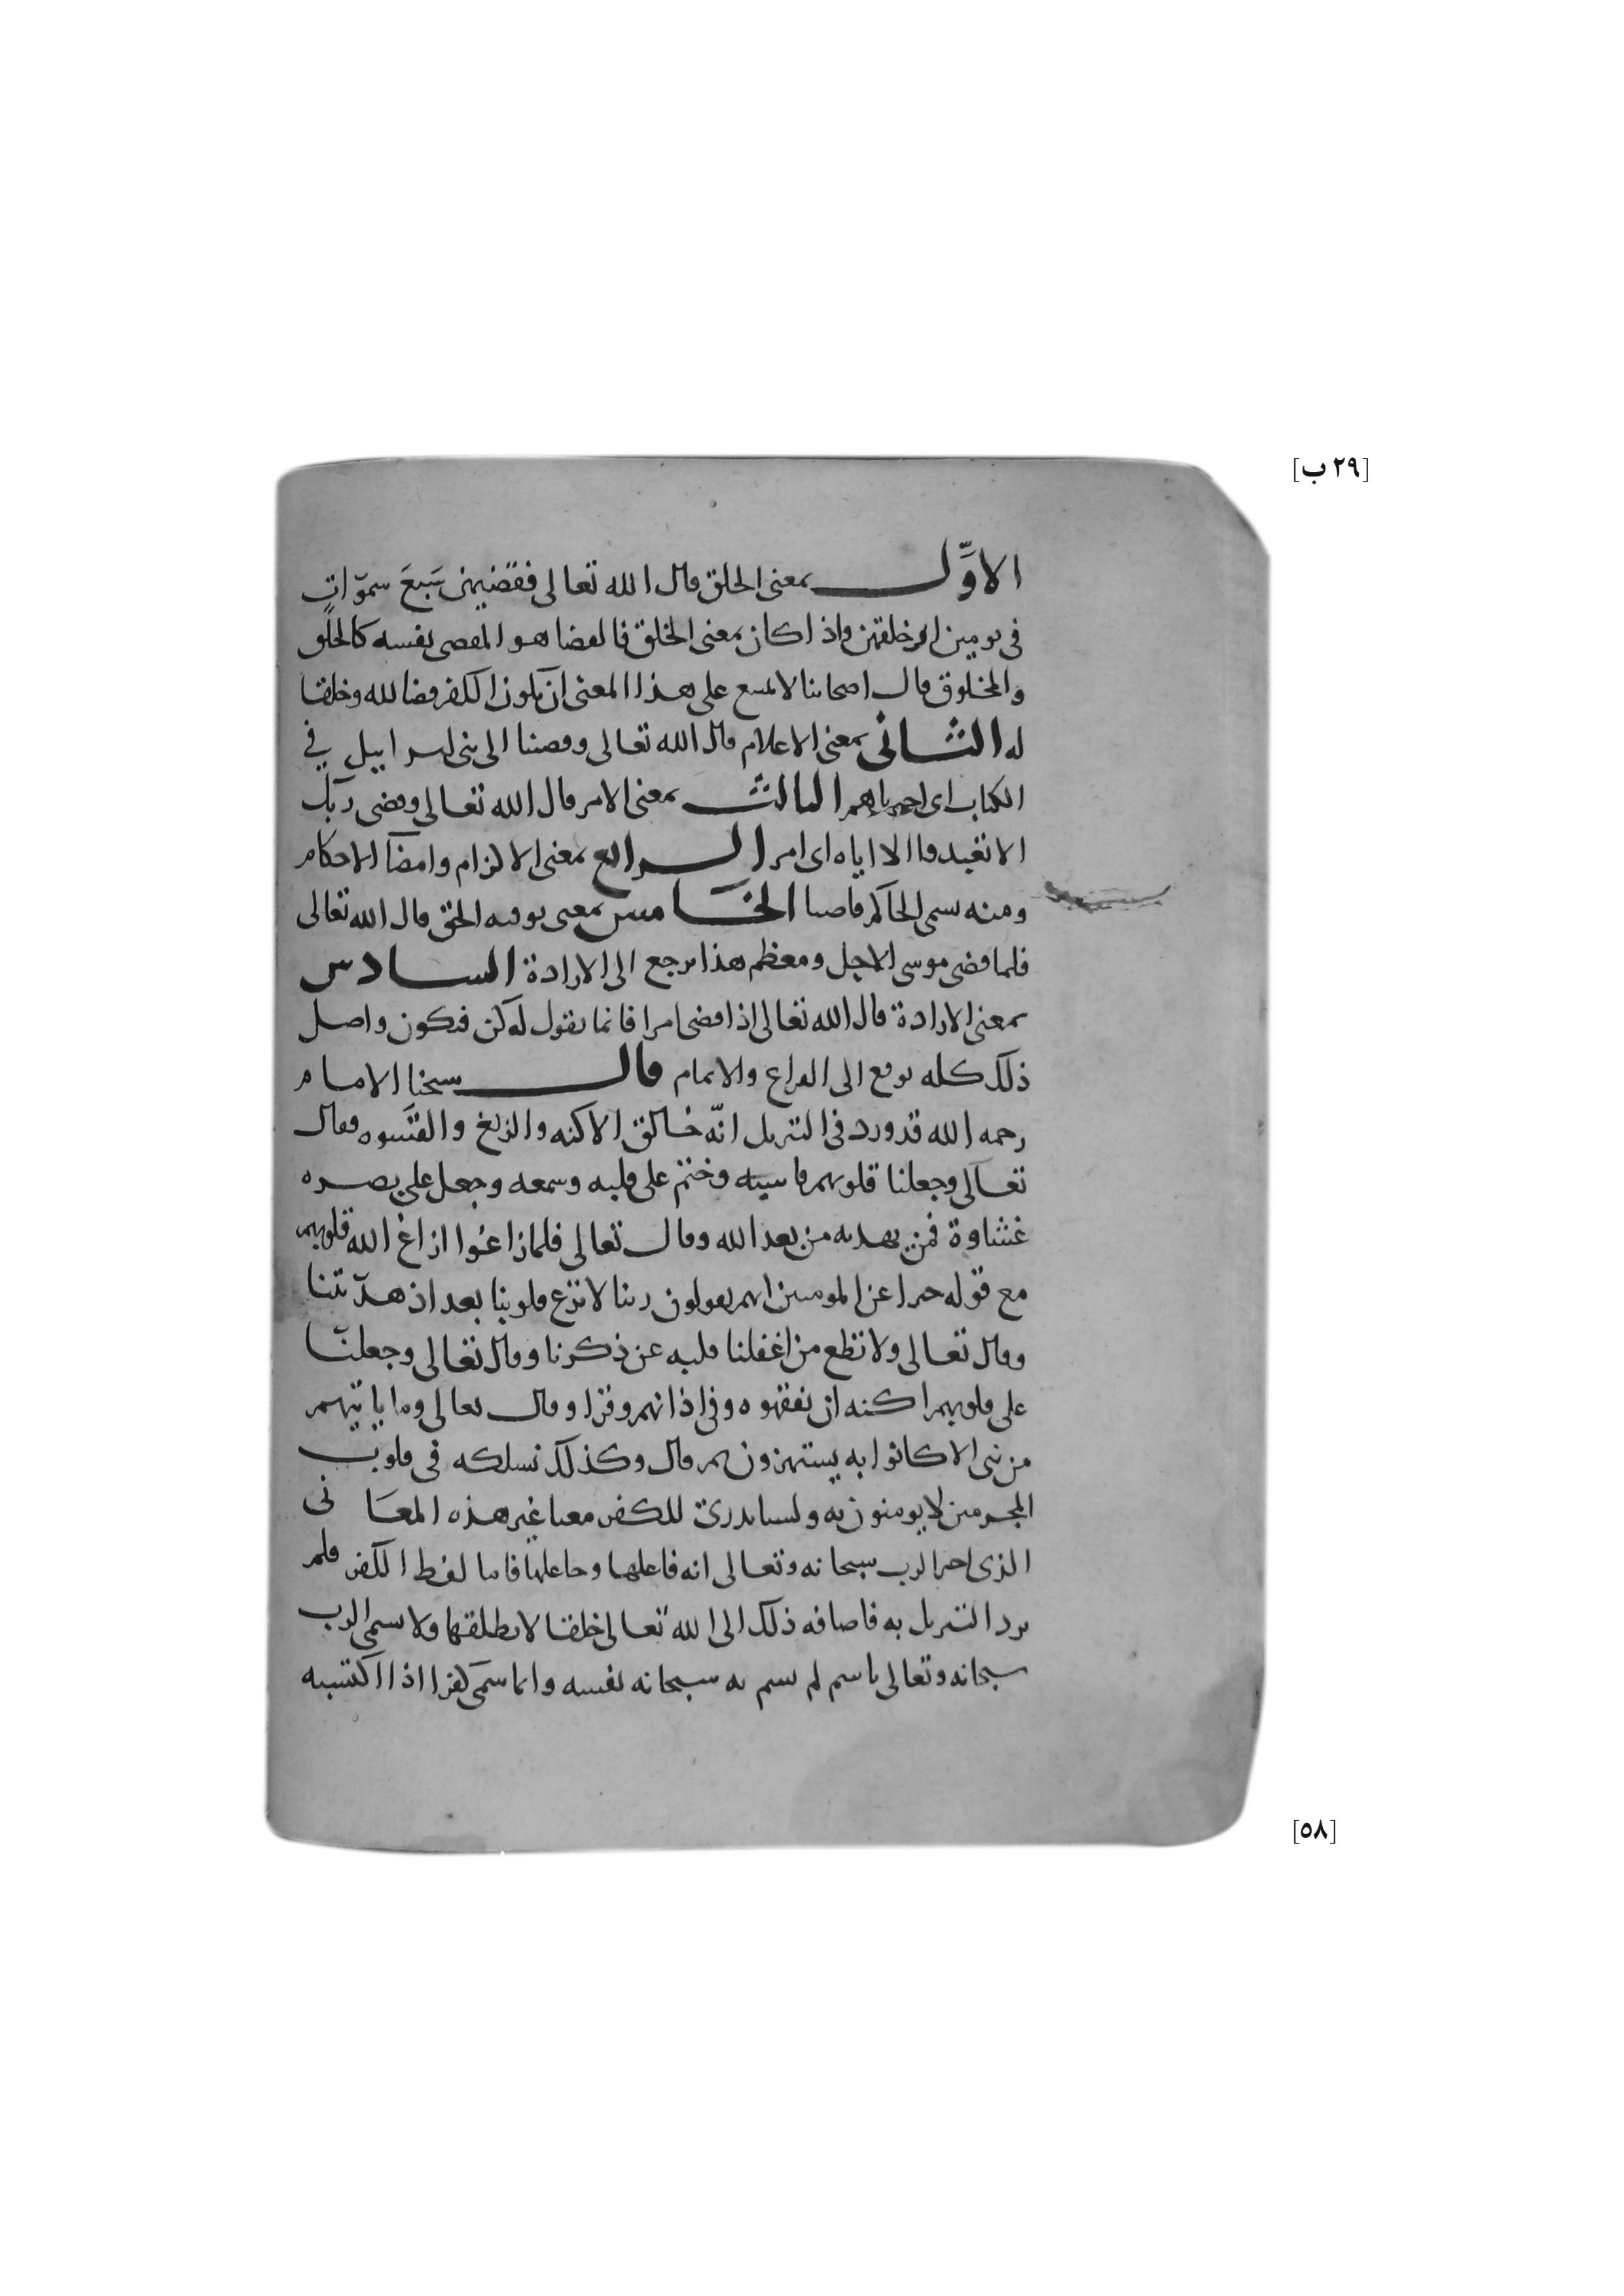 [٢٩ ب]
الاوَّل بمعنى الخلق قال الله تعالى فقضيهن سَبعَ سموَات
في يومين اى خلقهن واذا كان بمعنى الخلق فالقضا هو المقضى نفسه كالخلق
والمخلوق قال اصحابنا لا يمتنع على هذا المعنى ان يكون الكفر قضا لله وخلقا
له الثانى بمعنى الاعلام قال الله تعالى وقضينا الى بنى اسرابيل في
الكتاب اى اخبرناهم الثالث بمعنى الامر قال الله تعالى وقضى ربك
الا تعبدوا الا اياه اى امر الرابع بمعنى الالزام وامضا الاحكام
ومنه سمى الحاكم قاضيا الخامس بمعنى توفيه الحق قال الله تعالى
فلما قضى موسى الاجل ومعظم هذا يرجع الى الارادة السادس
بمعنى الارادة قال الله تعالى اذا قضى امرا فانما يقول له كن فيكون واصل
ذلك كله يرجع الى الفراغ والاتمام قال شيخنا الامام
رحمه الله قد ورد في التنزيل انّه خالق الاكنه والزيغ والقسوه فقال
تعالى وجعلنا قلوبهم قاسيه وختم على قلبه وسمعه وجعل على بصره
غشاوة فمن يهديه من بعد الله وقال تعالى فلما زاغوا ازاغ الله قلوبهم
مع قوله خبرا عن المومنين انهم يقولون ربنا لا تزغ قلوبنا بعد اذ هديتنا
وقال تعالى ولا تطع من اغفلنا قلبه عن ذكرنا وقال تعالى وجعلنا
على قلوبهم اكنه ان يفقهوه وفي اذانهم وقرا وقال تعالى وما ياتيهم
من نبى الا كانوا به يستهزون ثم قال وكذلك نسلكه في قلوب
المجرمين لا يومنون به ولسنا ندرى للكفر معنا غير هذه المعَانى
الذى اخبر الرب سبحانه وتعالى انه فاعلها وجاعلها فاما لفظ الكفر فلم
يرد التنزيل به فاضافه ذلك الى الله تعالى خلقا لا نطلقها ولا نسمى الرب
سبحانه وتعالى باسم لم يسم به سبحانه نفسه وانما سمى كفرا اذا اكتسبه
[٥٨]